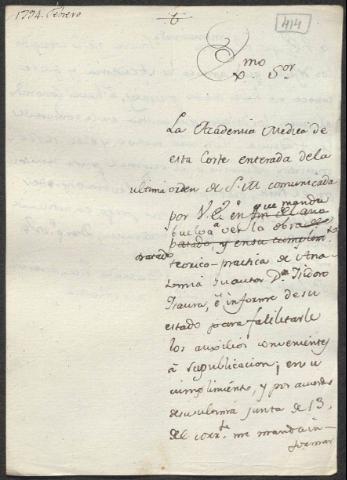 1794. Febrero
t
414
Exmo Sor
La Academia Medica de
esta Corte enterada dela
ultima orden de S. M. comunicada
por V. E. en que manda
vuelva a ver la obra
tratado
teorico-practica de Ana
tomia su autor Dn Isidoro
Isaura, è informe de su
estado para facilitarle
los auxilios convenientes
à supublicacion; en su
cumplimiento, y por acuerdo
desu ultima junta de 13,
del corrte me manda in-
formar